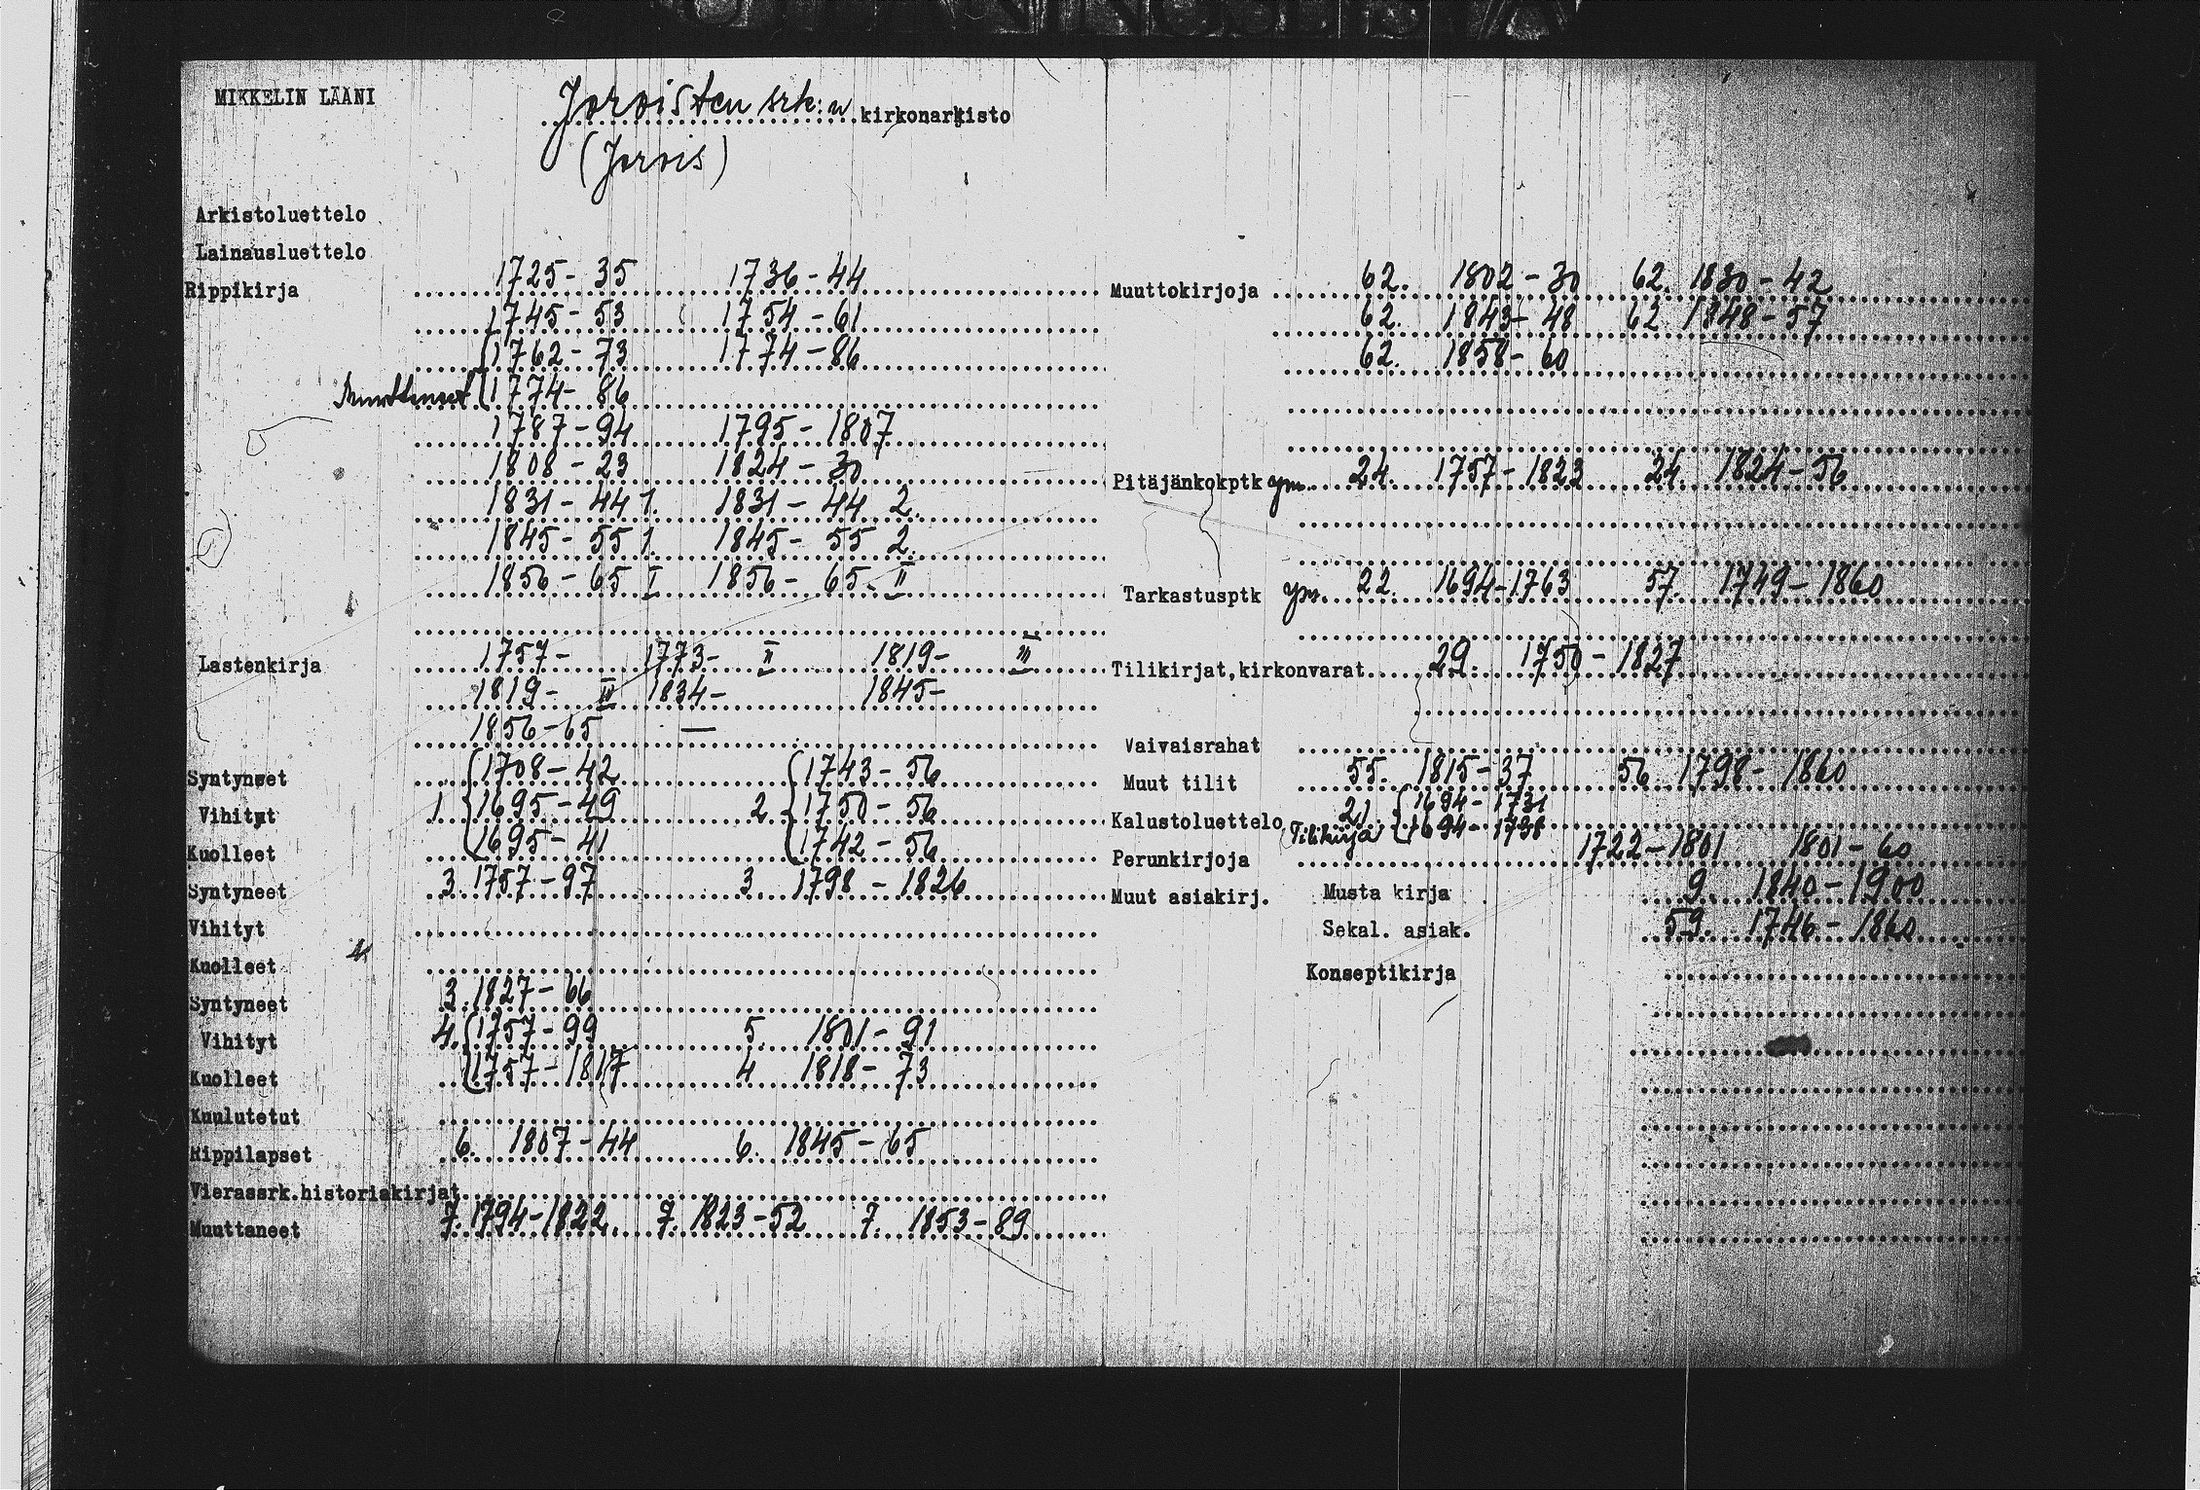 MIKKELIN LÄÄNI
Joroisten srk:n kirkonarkisto
(Jorois)
Arkistoluettelo
Lainausluettelo
Rippikirja 1725-35 1736-44
1745-53 1754-61
1762-73 1774-86
Muuttaneet 1774-86
1787-94 1795-1807
1808-23 1824-30
1831-44 1. 1831-44 2.
1845-55 1. 1845-55 2.
1856-65 I 1856-65 II
Lastenkirja 1757- 1773- II 1819- III
1819- IV 1834- 1845-
1856-65 —
Syntyneet 1708-42 1743-56
Vihityt 1 1695-49 2 1750-56
Kuolleet 1695-41 1742-56
Syntyneet 3. 1757-97 3. 1798-1826
Vihityt
Kuolleet
Syntyneet 3. 1827-66
Vihityt 4. 1757-99 5. 1801-91
Kuolleet 1757-1817 4 1818-73
Kuulutetut
Rippilapset 6. 1807-44 6. 1845-65
Vierassrk.historiakirjat
Muuttaneet 7. 1794-1822. 7. 1823-52 7. 1853-89
Muuttokirjoja 62. 1802-30 62. 1830-42
62. 1843-48 62. 1848-57
62. 1858-60
Pitäjänkokptk ym. 24. 1757-1823 24. 1824-56
Tarkastusptk ym. 22. 1694-1763 57. 1749-1860
Tilikirjat,kirkonvarat 29. 1750-1827
Vaivaisrahat
Muut tilit 55. 1815-37 56. 1798-1860
Kalustoluettelo 21 1694-1731
Tilikirja 1694-1738
Perunkirjoja 1722-1801 1801-60
Muut asiakirj. Musta kirja 9. 1840-1900
Sekal. asiak. 59. 1746-1860
Konseptikirja